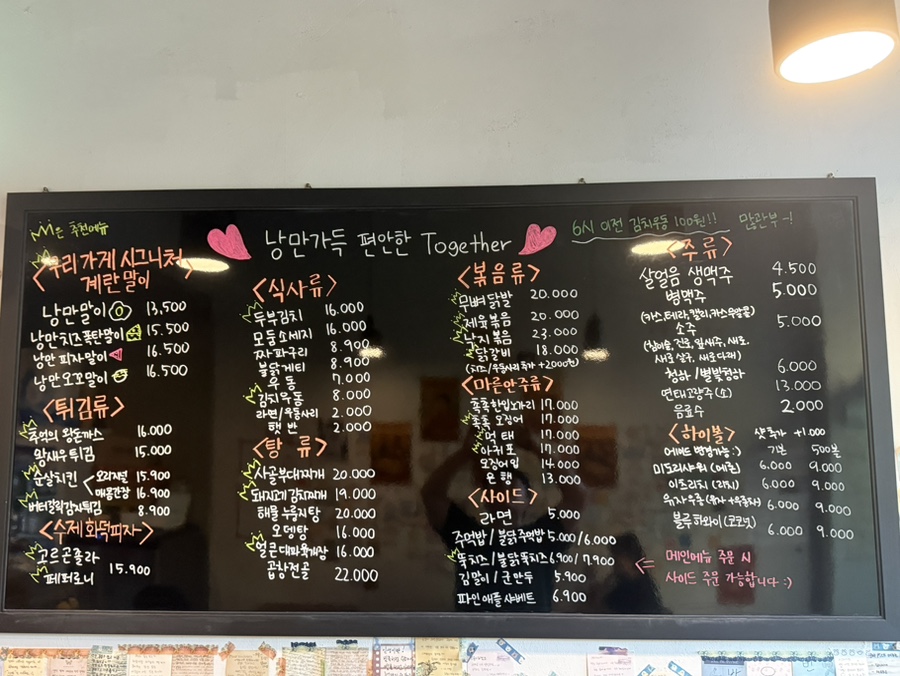 은 추천메뉴
낭만가득 편안한 Together
6시 이전 김치우동 100원!! 많관부~!
<우리가게 시그니처
계란말이>
낭만말이 13,500
낭만치즈폭탄말이 15.500
낭만 피자말이 16.500
낭만오꼬말이 16.500
<튀김류>
추억의 왕돈까스 16.000
왕새우튀김 15.000
순살치킨
오리지널 15.900
매콤간장 16.900
버터갈릭감자튀김 8.900
<수제화덕피자>
고르곤졸라
페퍼로니
15.900
<식사류>
두부김치 16.000
모둠소세지 16.000
짜파구리 8.900
불닭게티 8.900
우동 7.000
김치우동 8.000
라면/우동사리 2.000
햇반 2.000
<탕류>
사골부대찌개 20.000
돼지고기김치찌개 19.000
해물누룽지탕 20.000
오뎅탕 16.000
얼큰대파육개장 16.000
곱창전골 22.000
<볶음류>
무뼈닭발 20.000
제육볶음 20.000
낙지볶음 23.000
닭갈비 18.000
(치즈/우동사리추가 +2000원)
<마른안주류>
촉촉한입노가리 17.000
촉촉오징어 17.000
먹태 17.000
아귀포 17.000
오징어입 14.000
은행 13.000
<사이드>
라면 5.000
주먹밥/불닭주먹밥 5.000/6.000
뚝치즈/불닭뚝치즈 6.900/7.900
김말이/군만두 5.900
파인애플샤베트 6.900
<주류>
살얼음 생맥주 4.500
병맥주 5.000
(카스,테라,켈리,카스무알콜)
소주 5.000
(참이슬,진로,잎새주,새로,
새로살구,새로다래)
청하/별빛청하 6.000
연태고량주(소) 13.000
음료수 2000
<하이볼> 샷추가 +1.000
에이드변경가능:) 기본 500볼
미도리사워(메론) 6.000 9.000
이즈리치(리치) 6.000 9.000
유자유주(유자+유주) 6.000 9.000
블루하와이(코코넛) 6.000 9.000
메인메뉴 주문 시
사이드 주문 가능합니다:)